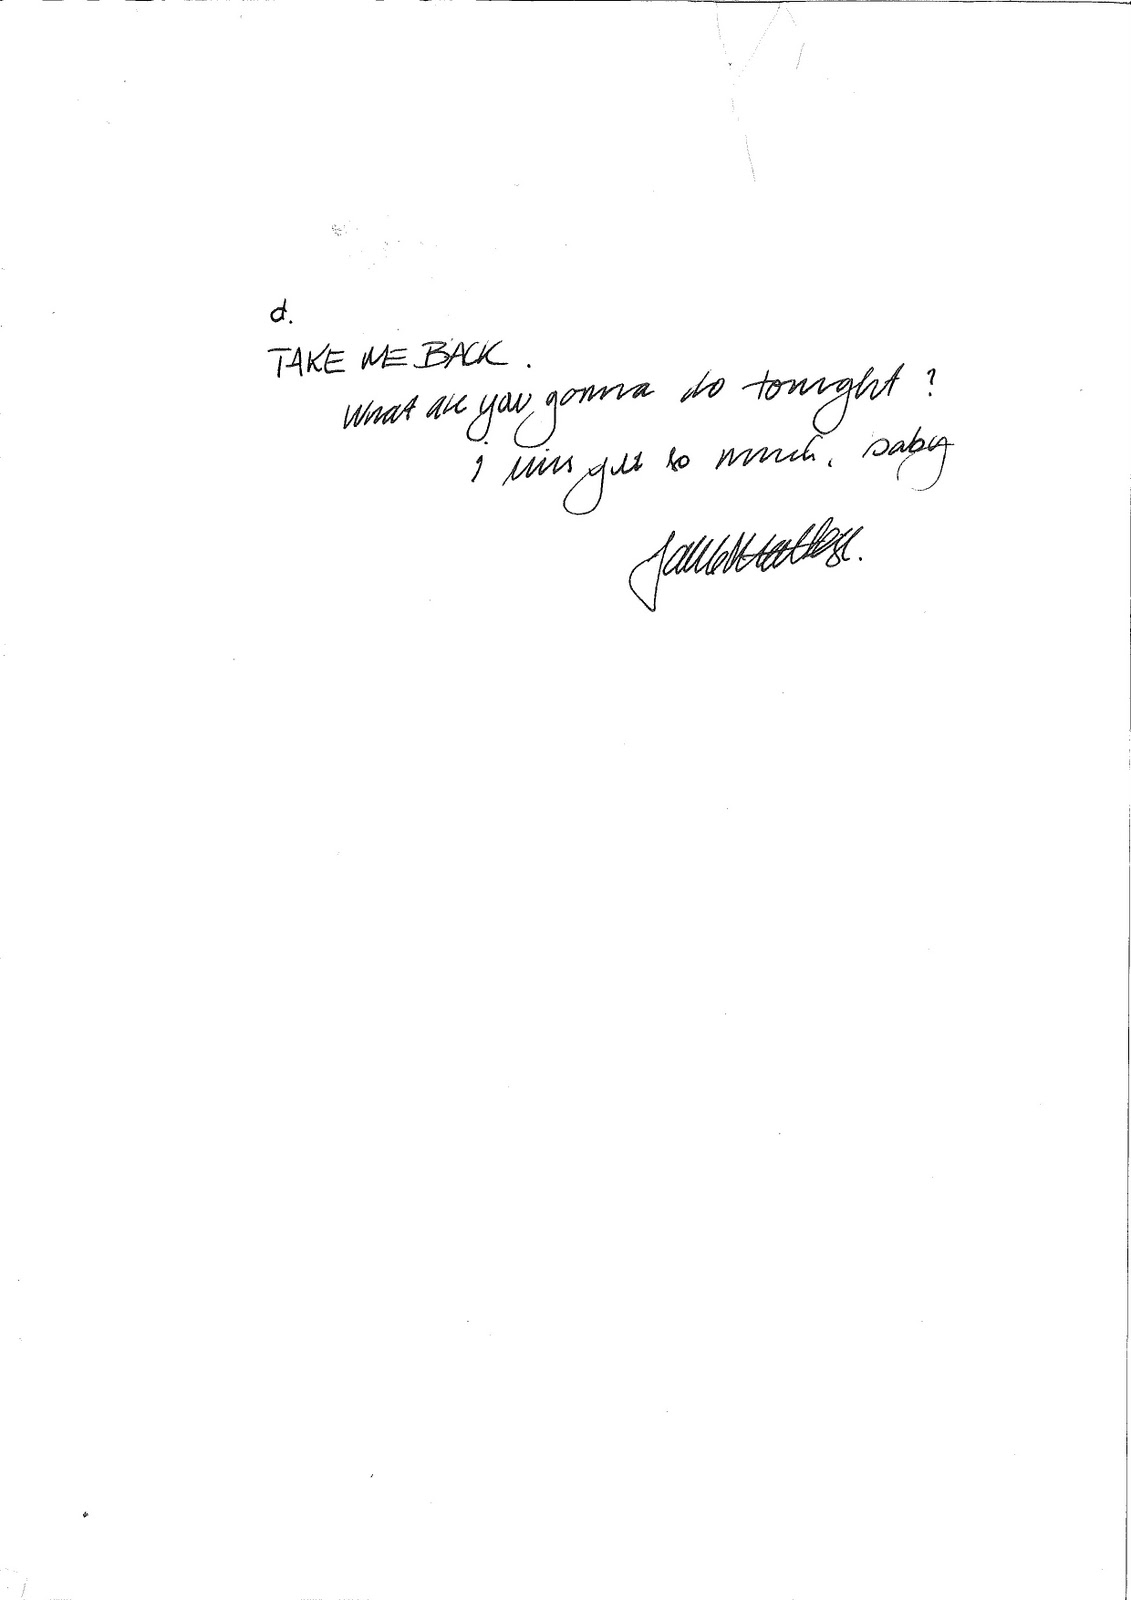 d.
TAKE ME BACK.
What are you gonna do tonight?
I miss you so much, baby